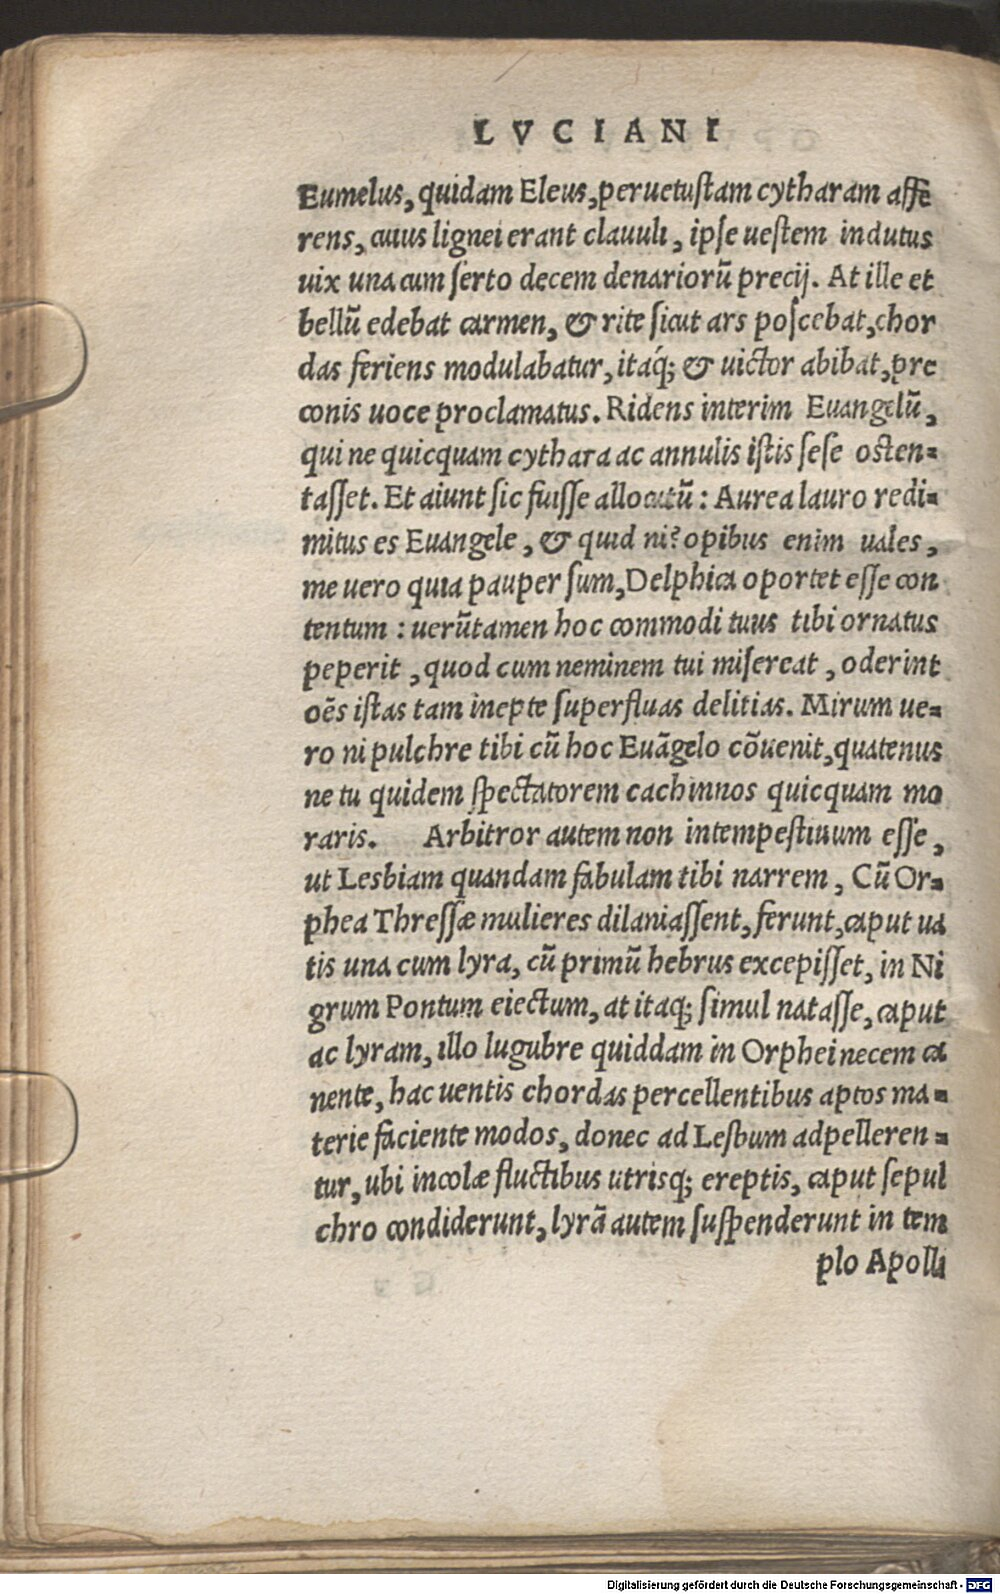 LVCIANI
Eumelus, quidam Eleus, peruetustam cytharam affe
rens, cuius lignei erant clauuli, ipse uestem indutus
uix una cum serto decem denariorū precij. At ille et
bellū edebat carmen, & rite sicut ars poscebat, chor
das feriens modulabatur, itáq; & uictor abibat, pre
conis uoce proclamatus. Ridens interim Euangelū,
qui ne quicquam cythara ac annulis istis sese osten=
tasset. Et aiunt sic fuisse allocutū: Aurea lauro redi=
mitus es Euangele, & quid ni? opibus enim uales,
me uero quia pauper sum, Delphica oportet esse con
tentum: uerūtamen hoc commodi tuus tibi ornatus
peperit, quod cum neminem tui misereat, oderint
oēs istas tam inepte superfluas delitias. Mirum ue=
ro ni pulchre tibi cū hoc Euāgelo cōuenit, quatenus
ne tu quidem spectatorem cachinnos quicquam mo
raris. Arbitror autem non intempestiuum esse,
ut Lesbiam quandam fabulam tibi narrem, Cū Or=
phea Thressæ mulieres dilaniassent, ferunt, caput ua
tis una cum lyra, cū primū hebrus excepisset, in Ni
grum Pontum eiectum, at itaq; simul natasse, caput
ac lyram, illo lugubre quiddam in Orphei necem ca
nente, hac uentis chordas percellentibus aptos ma=
terie faciente modos, donec ad Lesbum adpelleren=
tur, ubi incolæ fluctibus utrisq; ereptis, caput sepul
chro condiderunt, lyrā autem suspenderunt in tem
plo Apolli
Digitalisierung gefördert durch die Deutsche Forschungsgemeinschaft - DFG